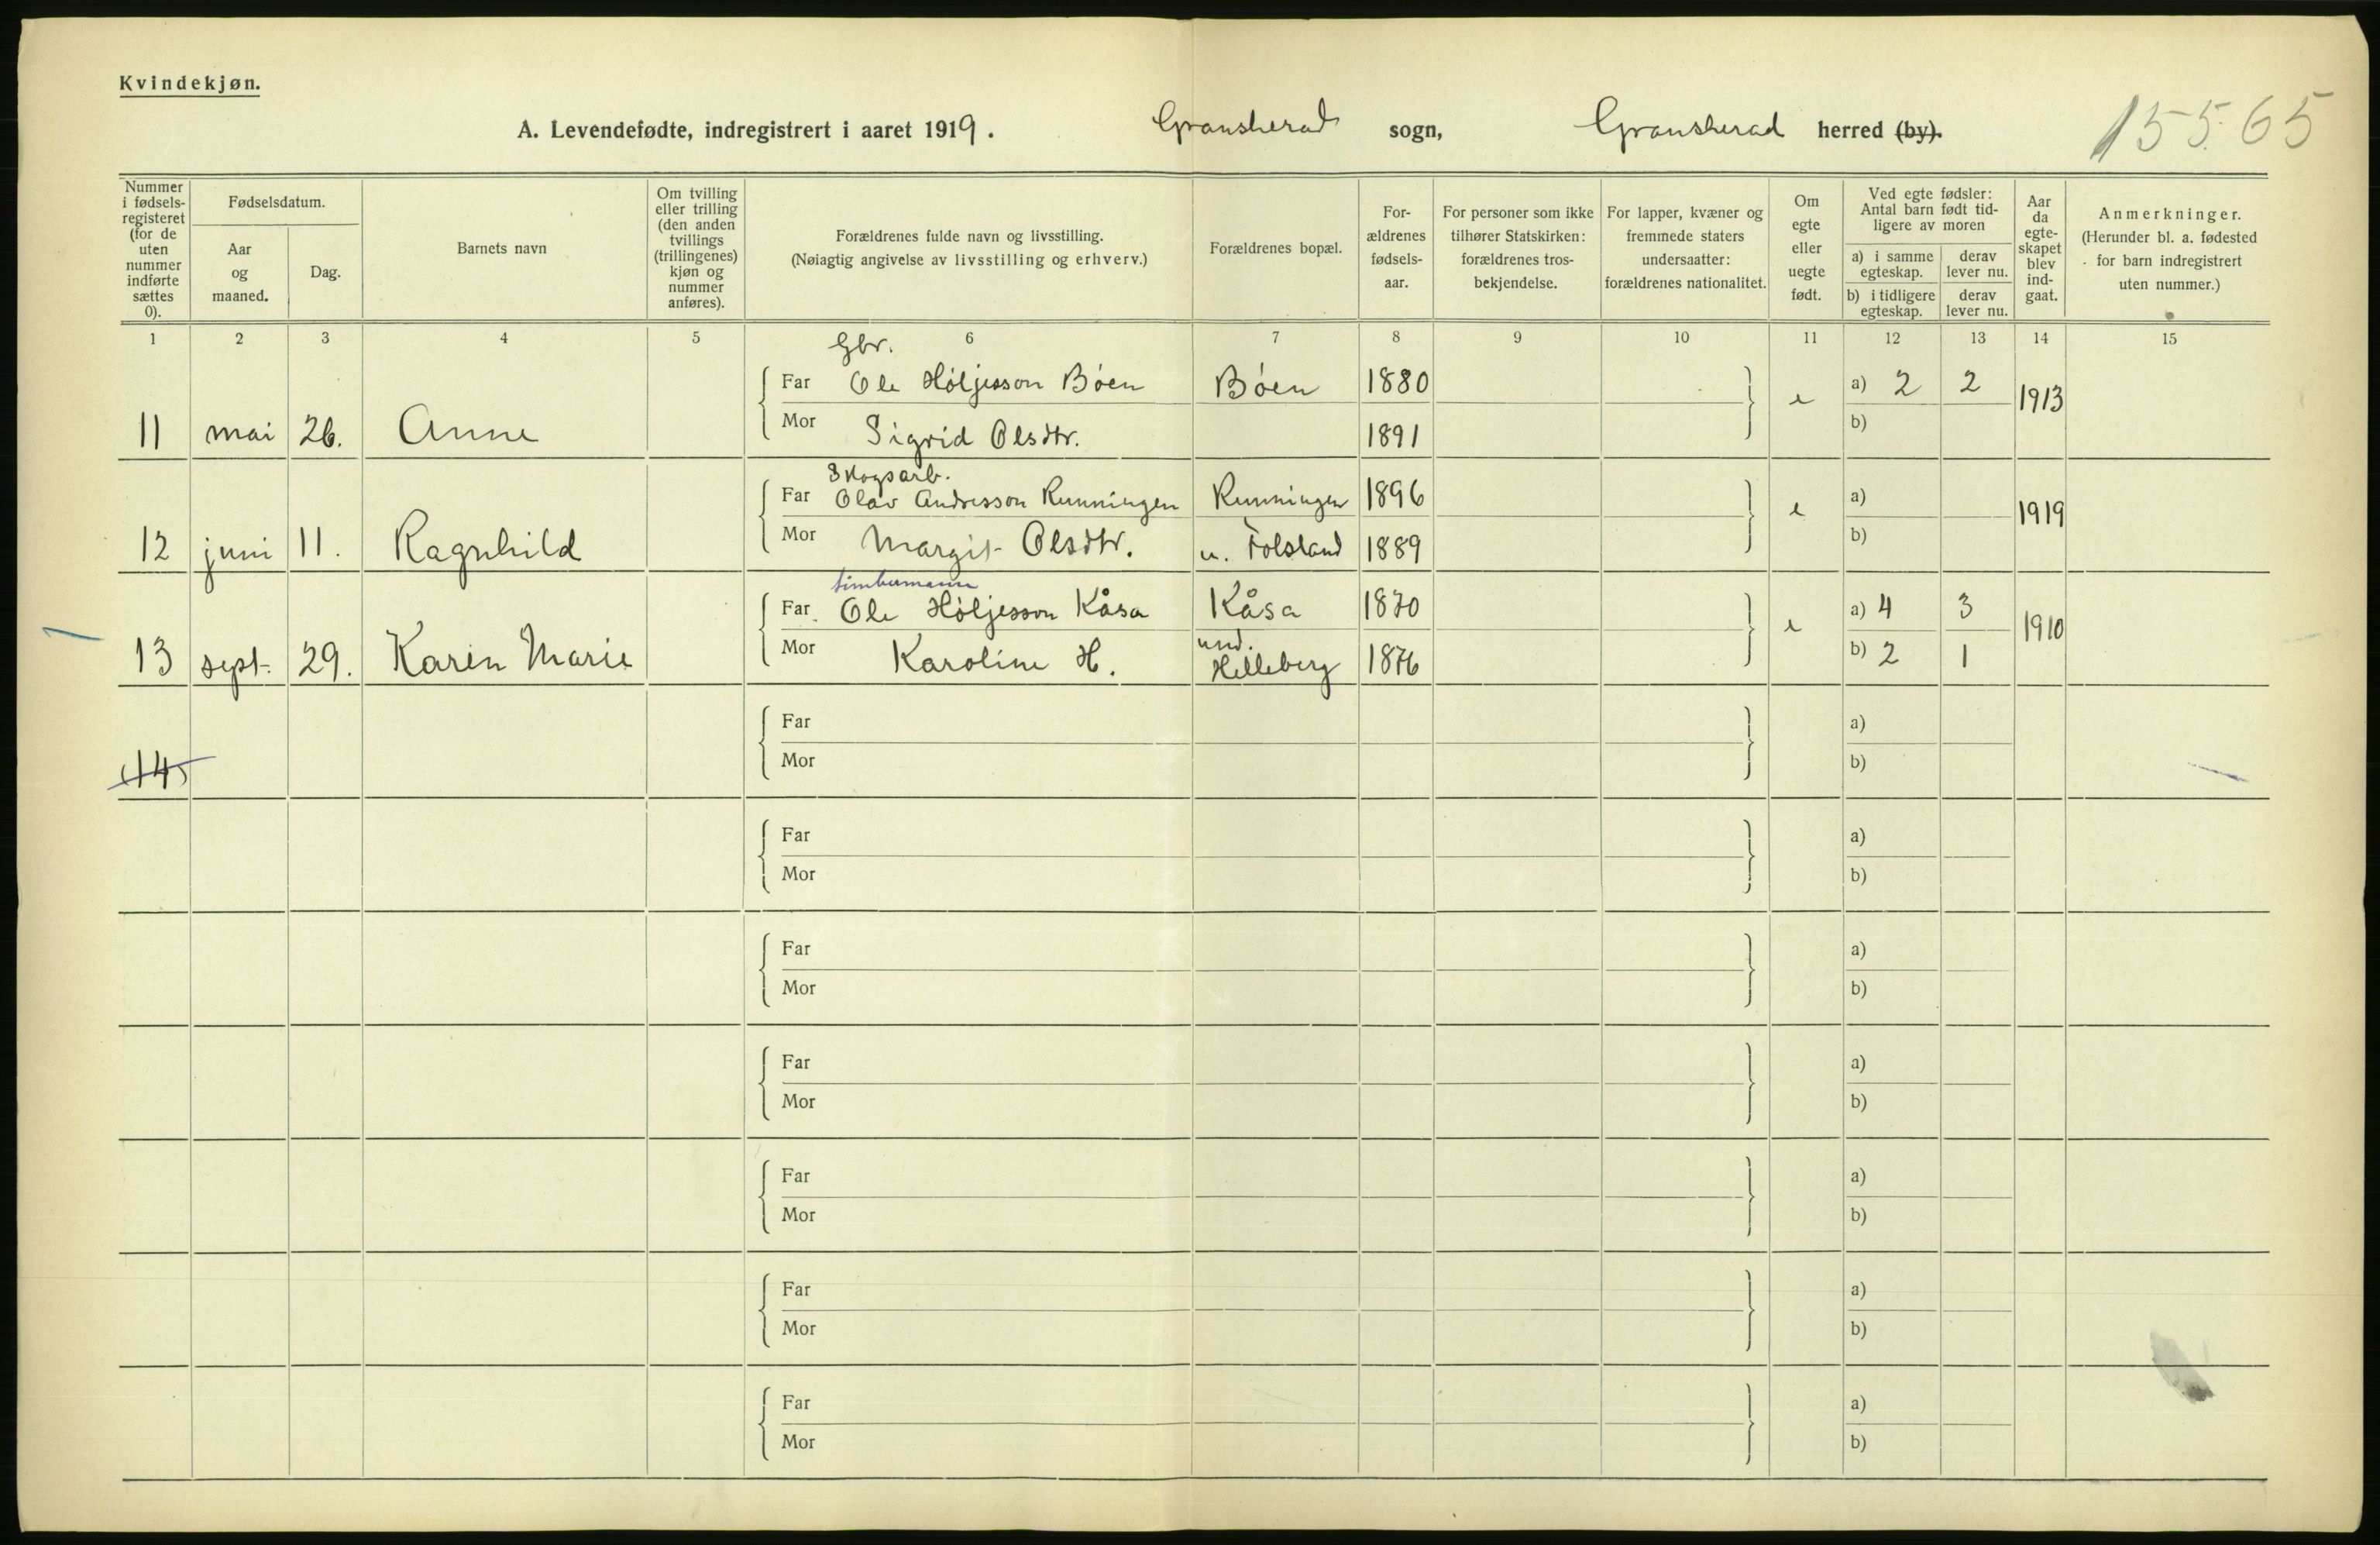 Kvindekjøn.
A. Levendefødte, indregistrert i aaret 1919. Gransherad sogn, Gransherad herred (by).
15565
Nummer i fødselsregisteret (for de uten nummer indførte sættes 0).
Fødselsdatum.
Aar og maaned.
Dag.
Barnets navn
Om tvilling eller trilling (den anden tvillings (trillingenes) kjøn og nummer anføres).
Forældrenes fulde navn og livsstilling.
(Nøiagtig angivelse av livsstilling og erhverv.)
Forældrenes bopæl.
For-ældrenes fødsels-aar.
For personer som ikke tilhører Statskirken: forældrenes tros-bekjendelse.
For lapper, kvæner og fremmede staters undersaatter: forældrenes nationalitet.
Om egte eller uegte født.
Ved egte fødsler: Antal barn født tid-ligere av moren
a) i samme egteskap.
derav lever nu.
b) i tidligere egteskap.
derav lever nu.
Aar da egte-skapet blev ind-gaat.
Anmerkninger.
(Herunder bl. a. fødested for barn indregistrert uten nummer.)
1 2 3 4 5 6 7 8 9 10 11 12 13 14 15
Gbr.
Far Ole Høljesson Bøen Bøen 1880 a) 2 2
11 mai 26. Anne Mor Sigrid Olsdtr. 1891 e b) 1913
Skogsarb.
Far Olav Andresson Runningen Runningen 1896 a)
12 juni 11. Ragnhild Mor Margit Olsdtr. u. Folsland 1889 e b) 1919
timbermann
Far Ole Høljesson Kåsa Kåsa 1870 a) 4 3
13 sept. 29. Karen Marie Mor Karoline H. und. Helleberg 1876 e b) 2 1 1910
Far a)
(14) Mor b)
Far a)
Mor b)
Far a)
Mor b)
Far a)
Mor b)
Far a)
Mor b)
Far a)
Mor b)
Far a)
Mor b)